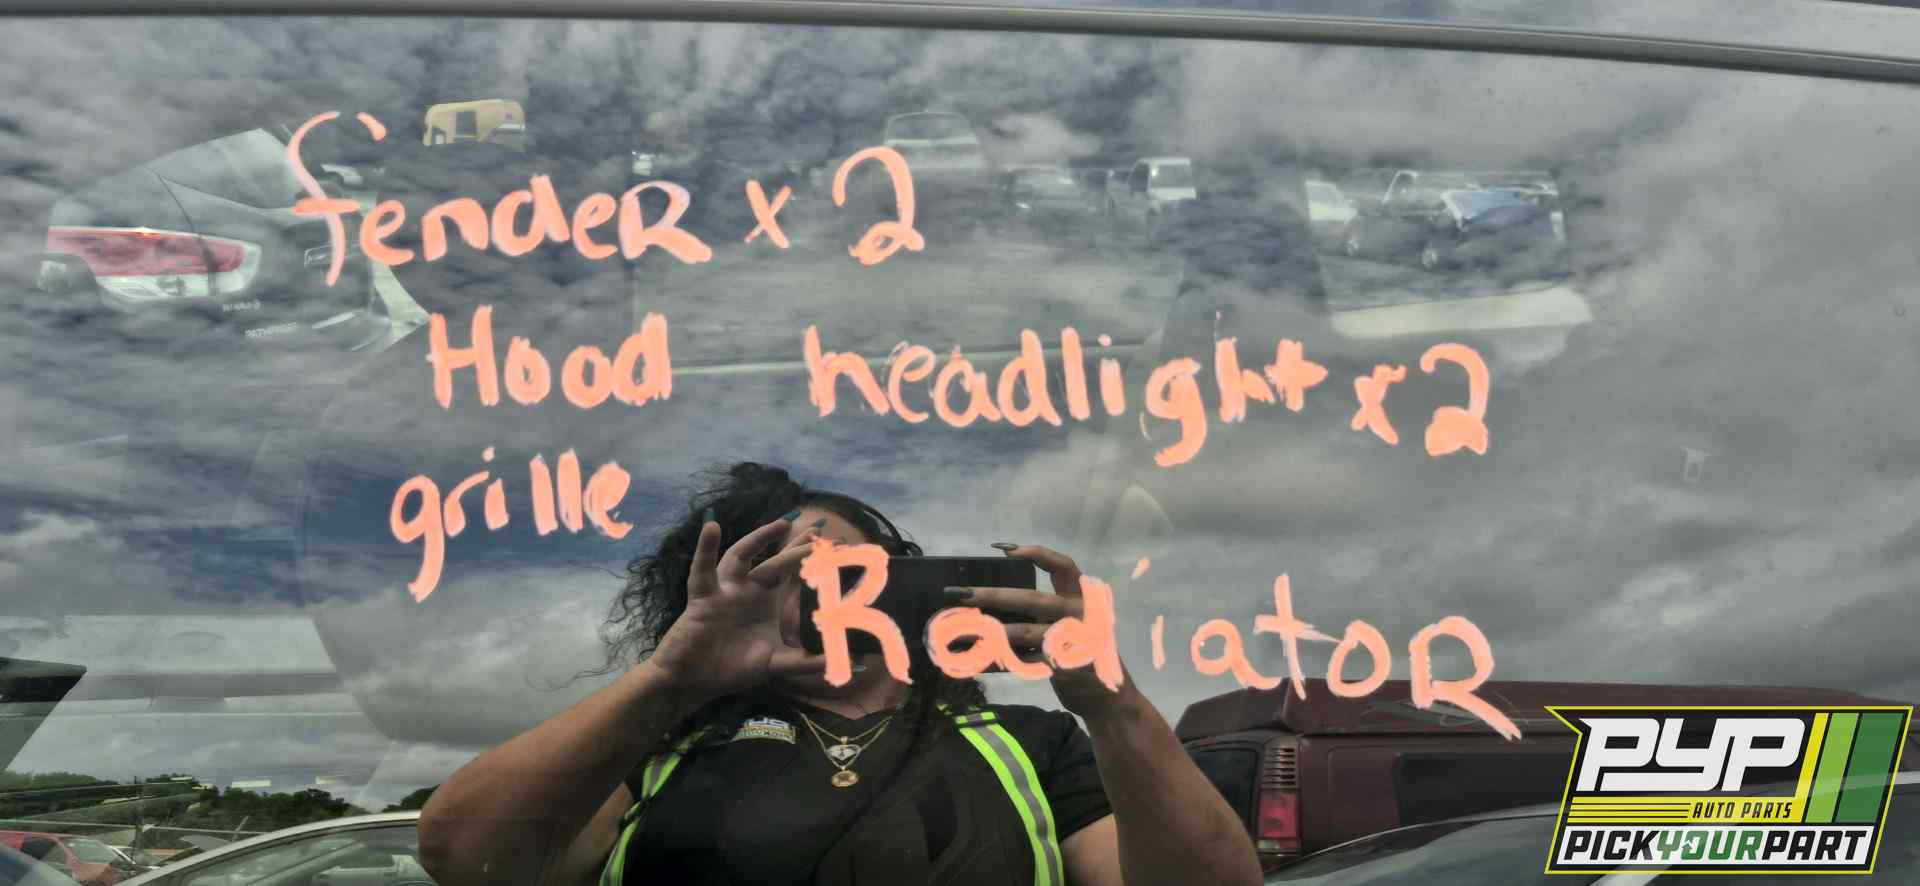 fendeR x 2
Hood headlight x 2
grille
RadiatoR
PYP
AUTO PARTS
PICKYOURPART